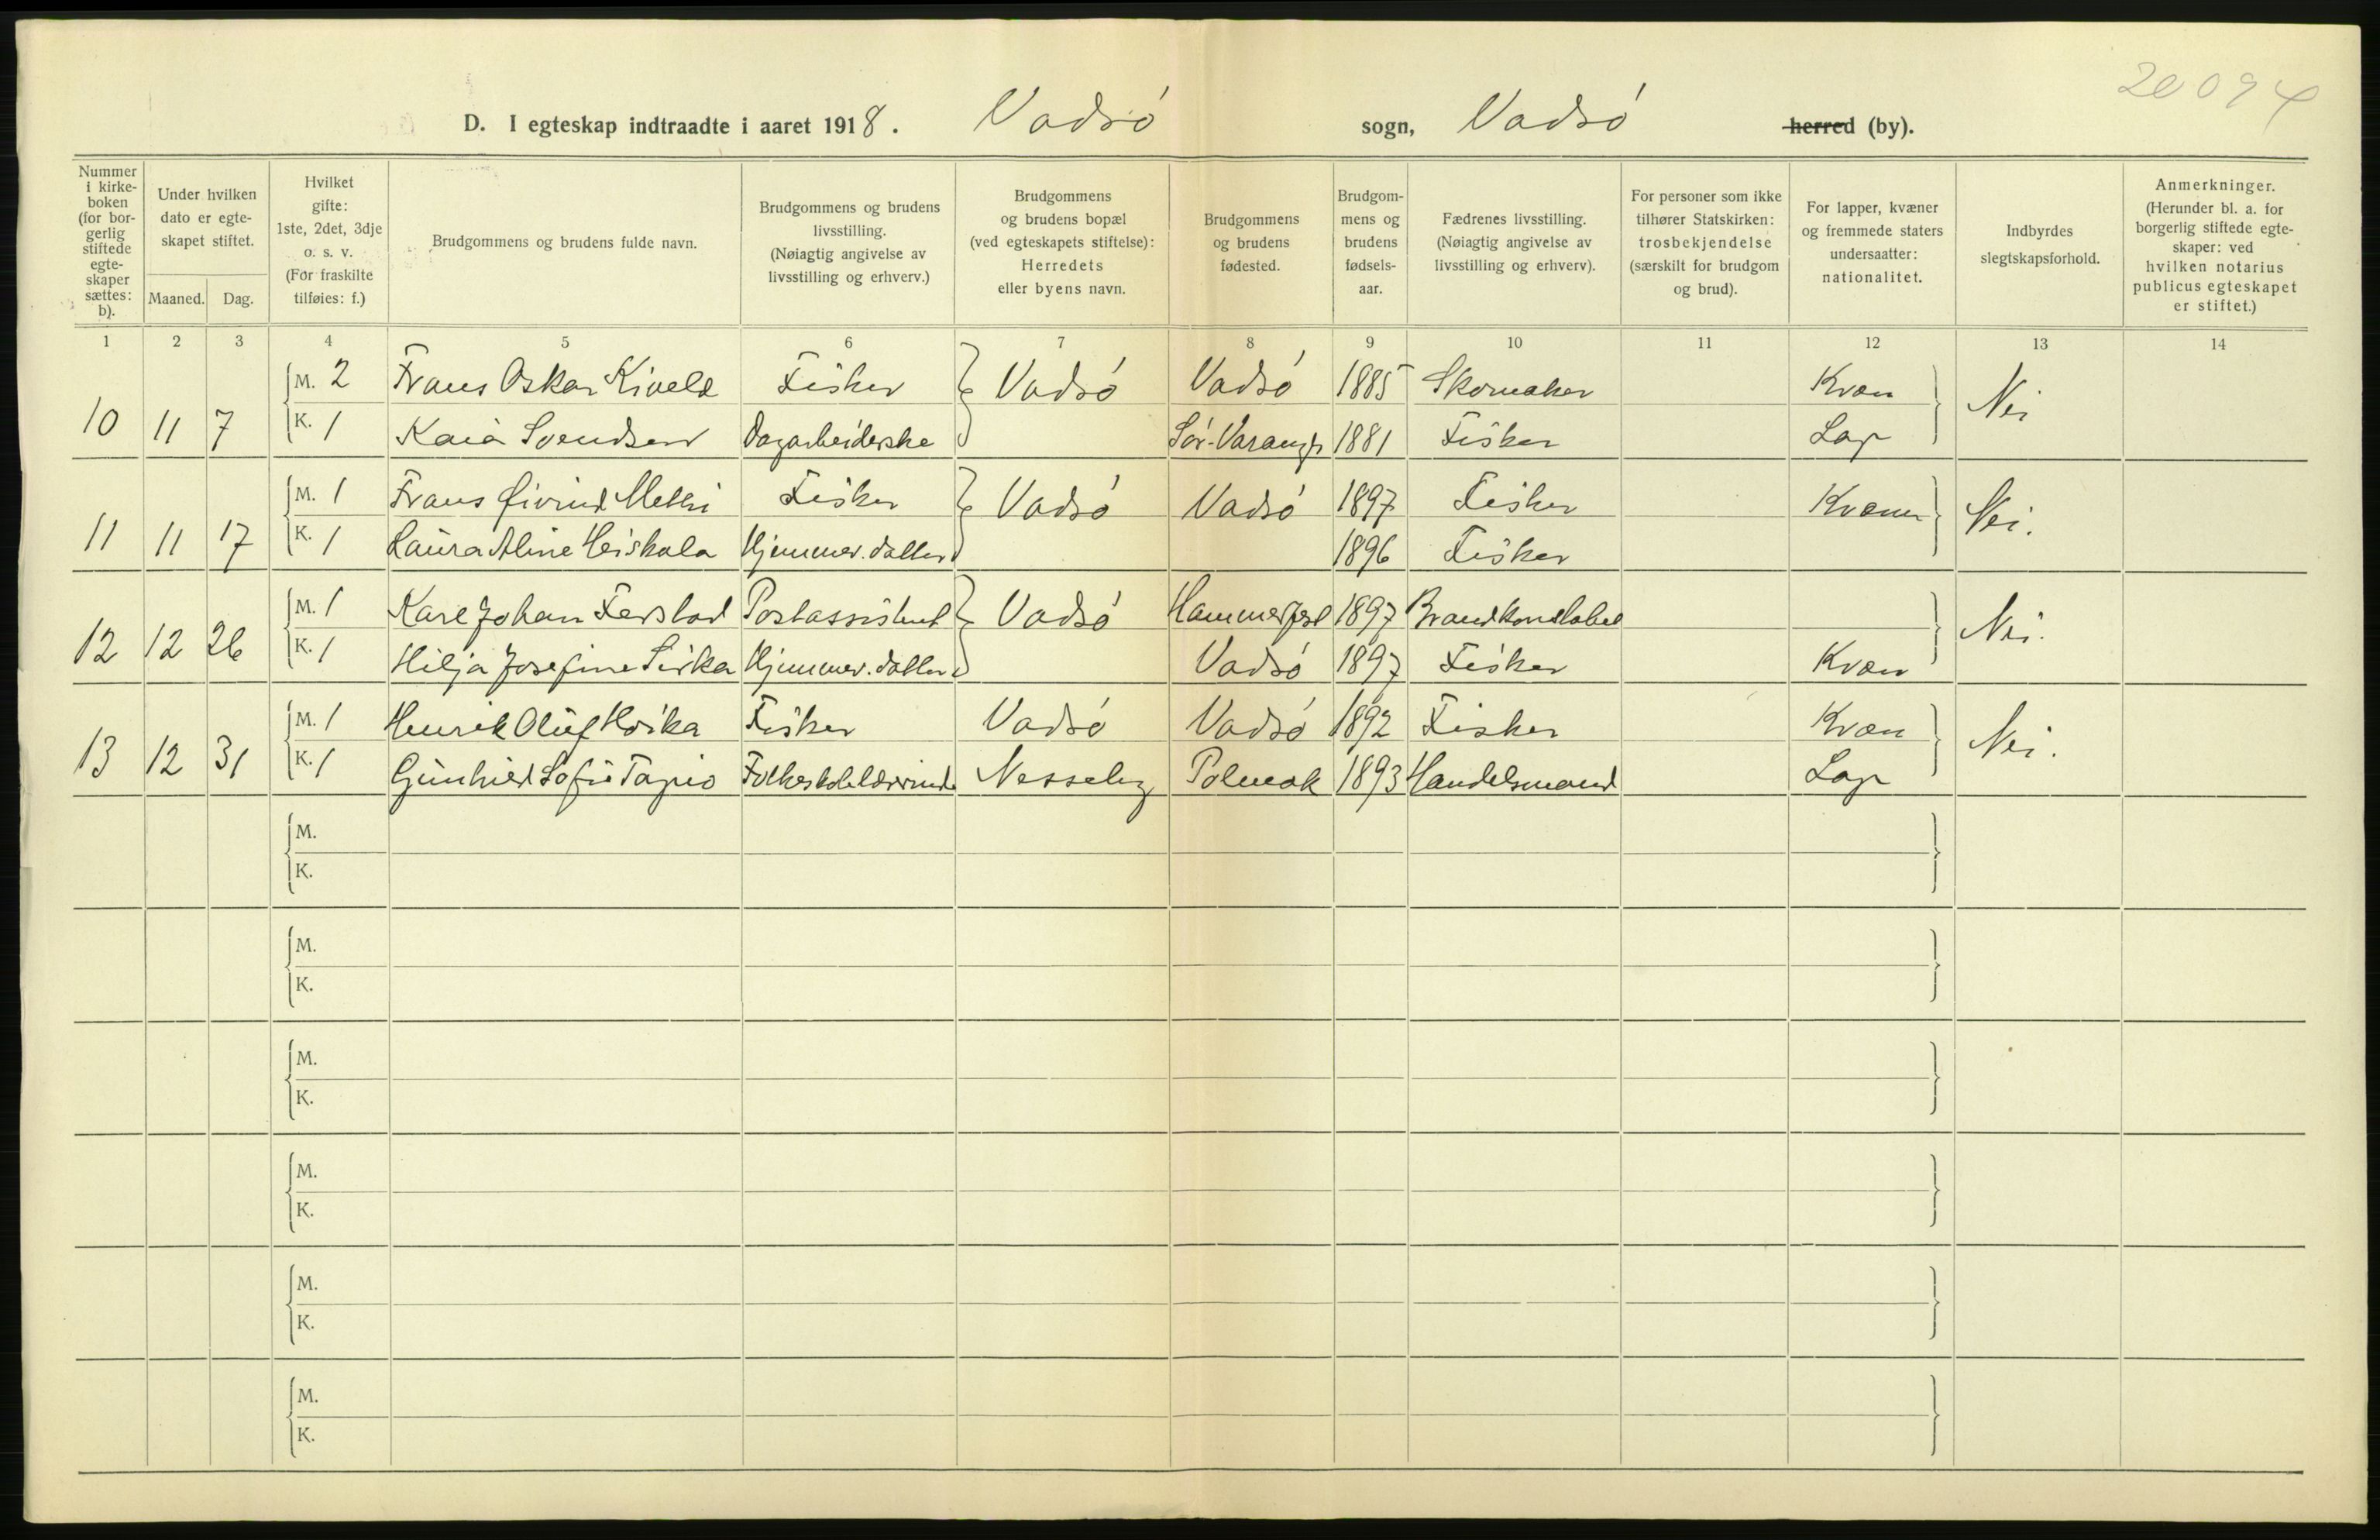 20094
D. I egteskap indtraadte i aaret 1918. Vadsø sogn, Vadsø herred (by).
Nummer i kirkeboken (for borgerlig stiftede egteskaper sættes: b).
Under hvilken dato er egteskapet stiftet.
Maaned. Dag.
Hvilket gifte: 1ste, 2det, 3dje o. s. v. (For fraskilte tilføies: f.)
Brudgommens og brudens fulde navn.
Brudgommens og brudens livsstilling. (Nøiagtig angivelse av livsstilling og erhverv.)
Brudgommens og brudens bopæl (ved egteskapets stiftelse): Herredets eller byens navn.
Brudgommens og brudens fødested.
Brudgommens og brudens fødselsaar.
Fædrenes livsstilling. (Nøiagtig angivelse av livsstilling og erhverv).
For personer som ikke tilhører Statskirken: trosbekjendelse (særskilt for brudgom og brud).
For lapper, kvæner og fremmede staters undersaatter: nationalitet.
Indbyrdes slegtskapsforhold.
Anmerkninger. (Herunder bl. a. for borgerlig stiftede egteskaper: ved hvilken notarius publicus egteskapet er stiftet.)
1 2 3 4 5 6 7 8 9 10 11 12 13 14
M. 2 Frans Oskar Kivelæ Fisker Vadsø Vadsø 1885 Skomaker Kvæn Nei
10 11 7 K. 1 Kaia Svendsen Dagarbeiderske Sør-Varanger 1881 Fisker Lap
M. 1 Frans Øivind Methi Fisker Vadsø Vadsø 1897 Fisker Kvæner Nei.
11 11 17 K. 1 Laura Aline Heiskala Hjemmev. datter 1896 Fisker
M. 1 Karl Johan Ferstad Postassistent Vadsø Hammerfest 1897 Brandkonstabel Nei.
12 12 26 K. 1 Hilja Josefine Sirka Hjemmev. datter Vadsø 1897 Fisker Kvæn
M. 1 Henrik Oluf Hoika Fisker Vadsø Vadsø 1892 Fisker Kvæn Nei.
13 12 31 K. 1 Gunhild Sofie Tapio Folkeskolelærerinde Nesseby Polmak 1893 Handelsmand Lap
M.
K.
M.
K.
M.
K.
M.
K.
M.
K.
M.
K.